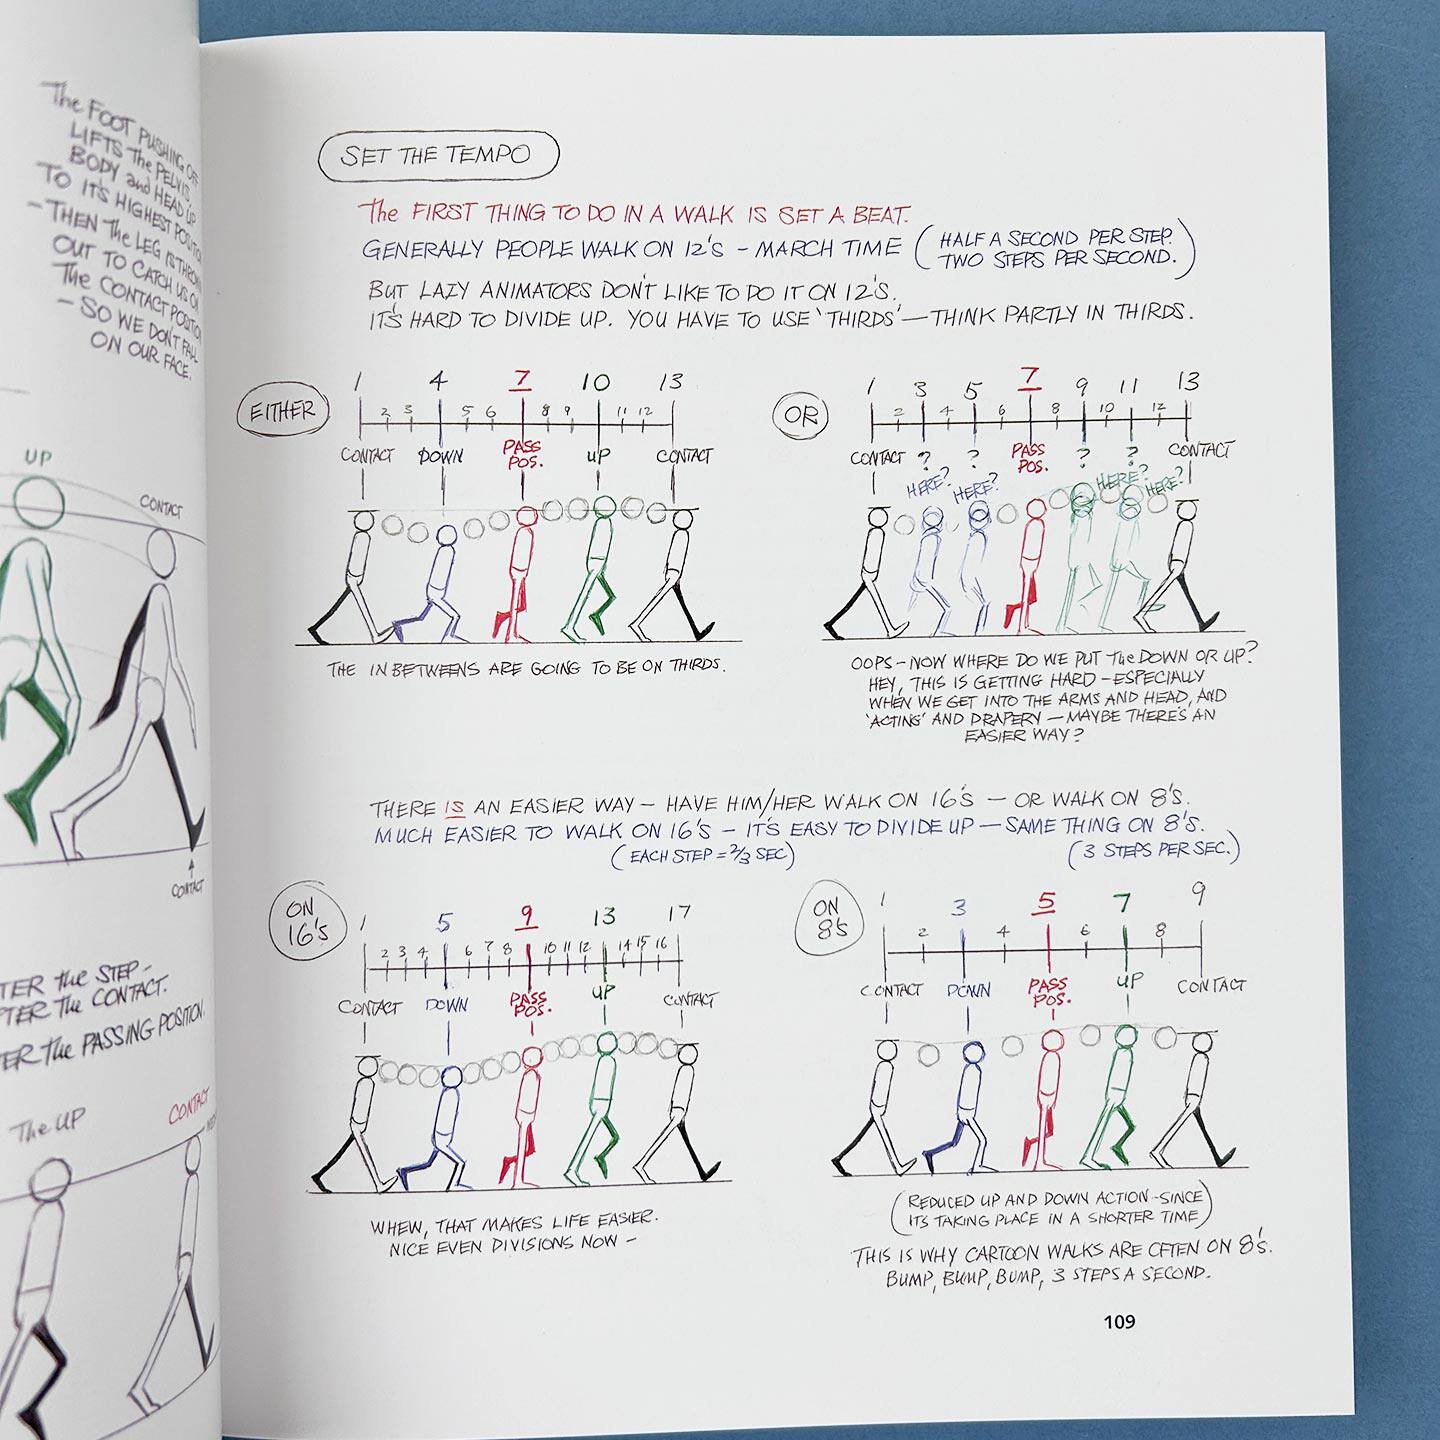 The FOOT PUSHING OFF
LIFTS the PELVIS,
BODY and HEAD UP
TO IT'S HIGHEST
- THEN the LEG IS
OUT TO CATCH US ON
The CONTACT POSITION
- SO WE DON'T FALL
ON OUR FACE.
UP
CONTACT
CONTACT
the STEP -
the CONTACT.
the PASSING POSITION.
The UP
CONTACT
SET THE TEMPO
The FIRST THING TO DO IN A WALK IS SET A BEAT.
GENERALLY PEOPLE WALK ON 12'S - MARCH TIME (HALF A SECOND PER STEP.
TWO STEPS PER SECOND.)
BUT LAZY ANIMATORS DON'T LIKE TO DO IT ON 12'S.
IT'S HARD TO DIVIDE UP. YOU HAVE TO USE 'THIRDS' - THINK PARTLY IN THIRDS.
EITHER
1 4 7 10 13
2 3 5 6 8 9 11 12
CONTACT DOWN PASS POS. UP CONTACT
THE INBETWEENS ARE GOING TO BE ON THIRDS.
OR
1 3 5 7 9 11 13
2 4 6 8 10 12
CONTACT ? ? PASS POS. ? ? CONTACT
HERE? HERE? HERE? HERE?
OOPS - NOW WHERE DO WE PUT The DOWN OR UP?
HEY, THIS IS GETTING HARD - ESPECIALLY
WHEN WE GET INTO THE ARMS AND HEAD, AND
'ACTING' AND DRAPERY - MAYBE THERE'S AN
EASIER WAY?
THERE IS AN EASIER WAY - HAVE HIM/HER WALK ON 16'S - OR WALK ON 8'S.
MUCH EASIER TO WALK ON 16'S - IT'S EASY TO DIVIDE UP - SAME THING ON 8'S.
(EACH STEP = 2/3 SEC) (3 STEPS PER SEC.)
ON
16'S
1 5 9 13 17
2 3 4 6 7 8 10 11 12 14 15 16
CONTACT DOWN PASS POS. UP CONTACT
WHEW, THAT MAKES LIFE EASIER.
NICE EVEN DIVISIONS NOW -
ON
8'S
1 3 5 7 9
2 4 6 8
CONTACT DOWN PASS POS. UP CONTACT
(REDUCED UP AND DOWN ACTION - SINCE
ITS TAKING PLACE IN A SHORTER TIME)
THIS IS WHY CARTOON WALKS ARE OFTEN ON 8'S.
BUMP, BUMP, BUMP, 3 STEPS A SECOND.
109